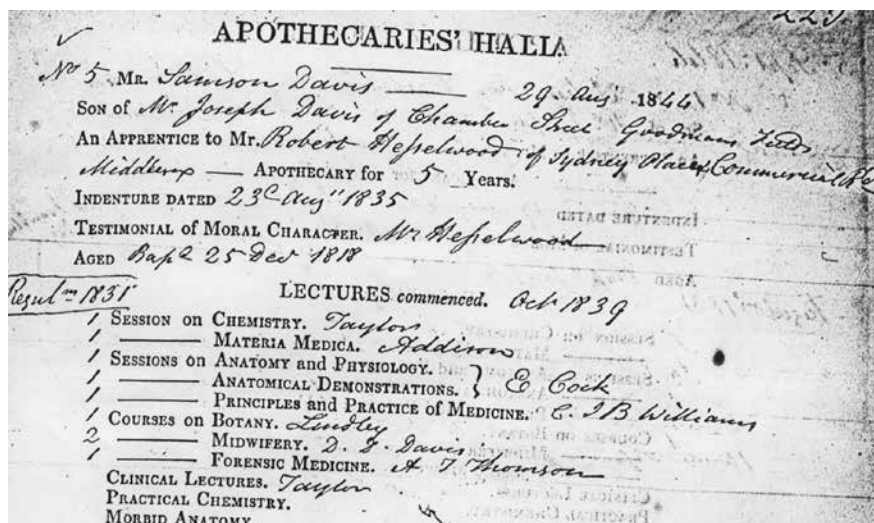 223.
APOTHECARIES' HALL
No 5 MR. Samson Davis 29 Aug 1844
SON OF Mr Joseph Davis of Chamber Street Goodmans Fields
AN APPRENTICE to MR. Robert Hesselwood of Sydney Place Commercial Rd
Middlesex APOTHECARY for 5 Years.
INDENTURE DATED 23d Augt 1835
TESTIMONIAL OF MORAL CHARACTER. Mr Hesselwood
AGED Bapd 25 Dec 1818
Reguln 1831 LECTURES commenced. Oct 1839
1 SESSION ON CHEMISTRY. Taylor
1 MATERIA MEDICA. Addison
1 SESSIONS ON ANATOMY AND PHYSIOLOGY.
1 ANATOMICAL DEMONSTRATIONS. } E Cock
1 PRINCIPLES AND PRACTICE OF MEDICINE. C. J B Williams
1 COURSES ON BOTANY. Lindley
2 MIDWIFERY. D. D. Davis
1 FORENSIC MEDICINE. A T Thomson
CLINICAL LECTURES. Taylor
PRACTICAL CHEMISTRY.
MORBID ANATOMY